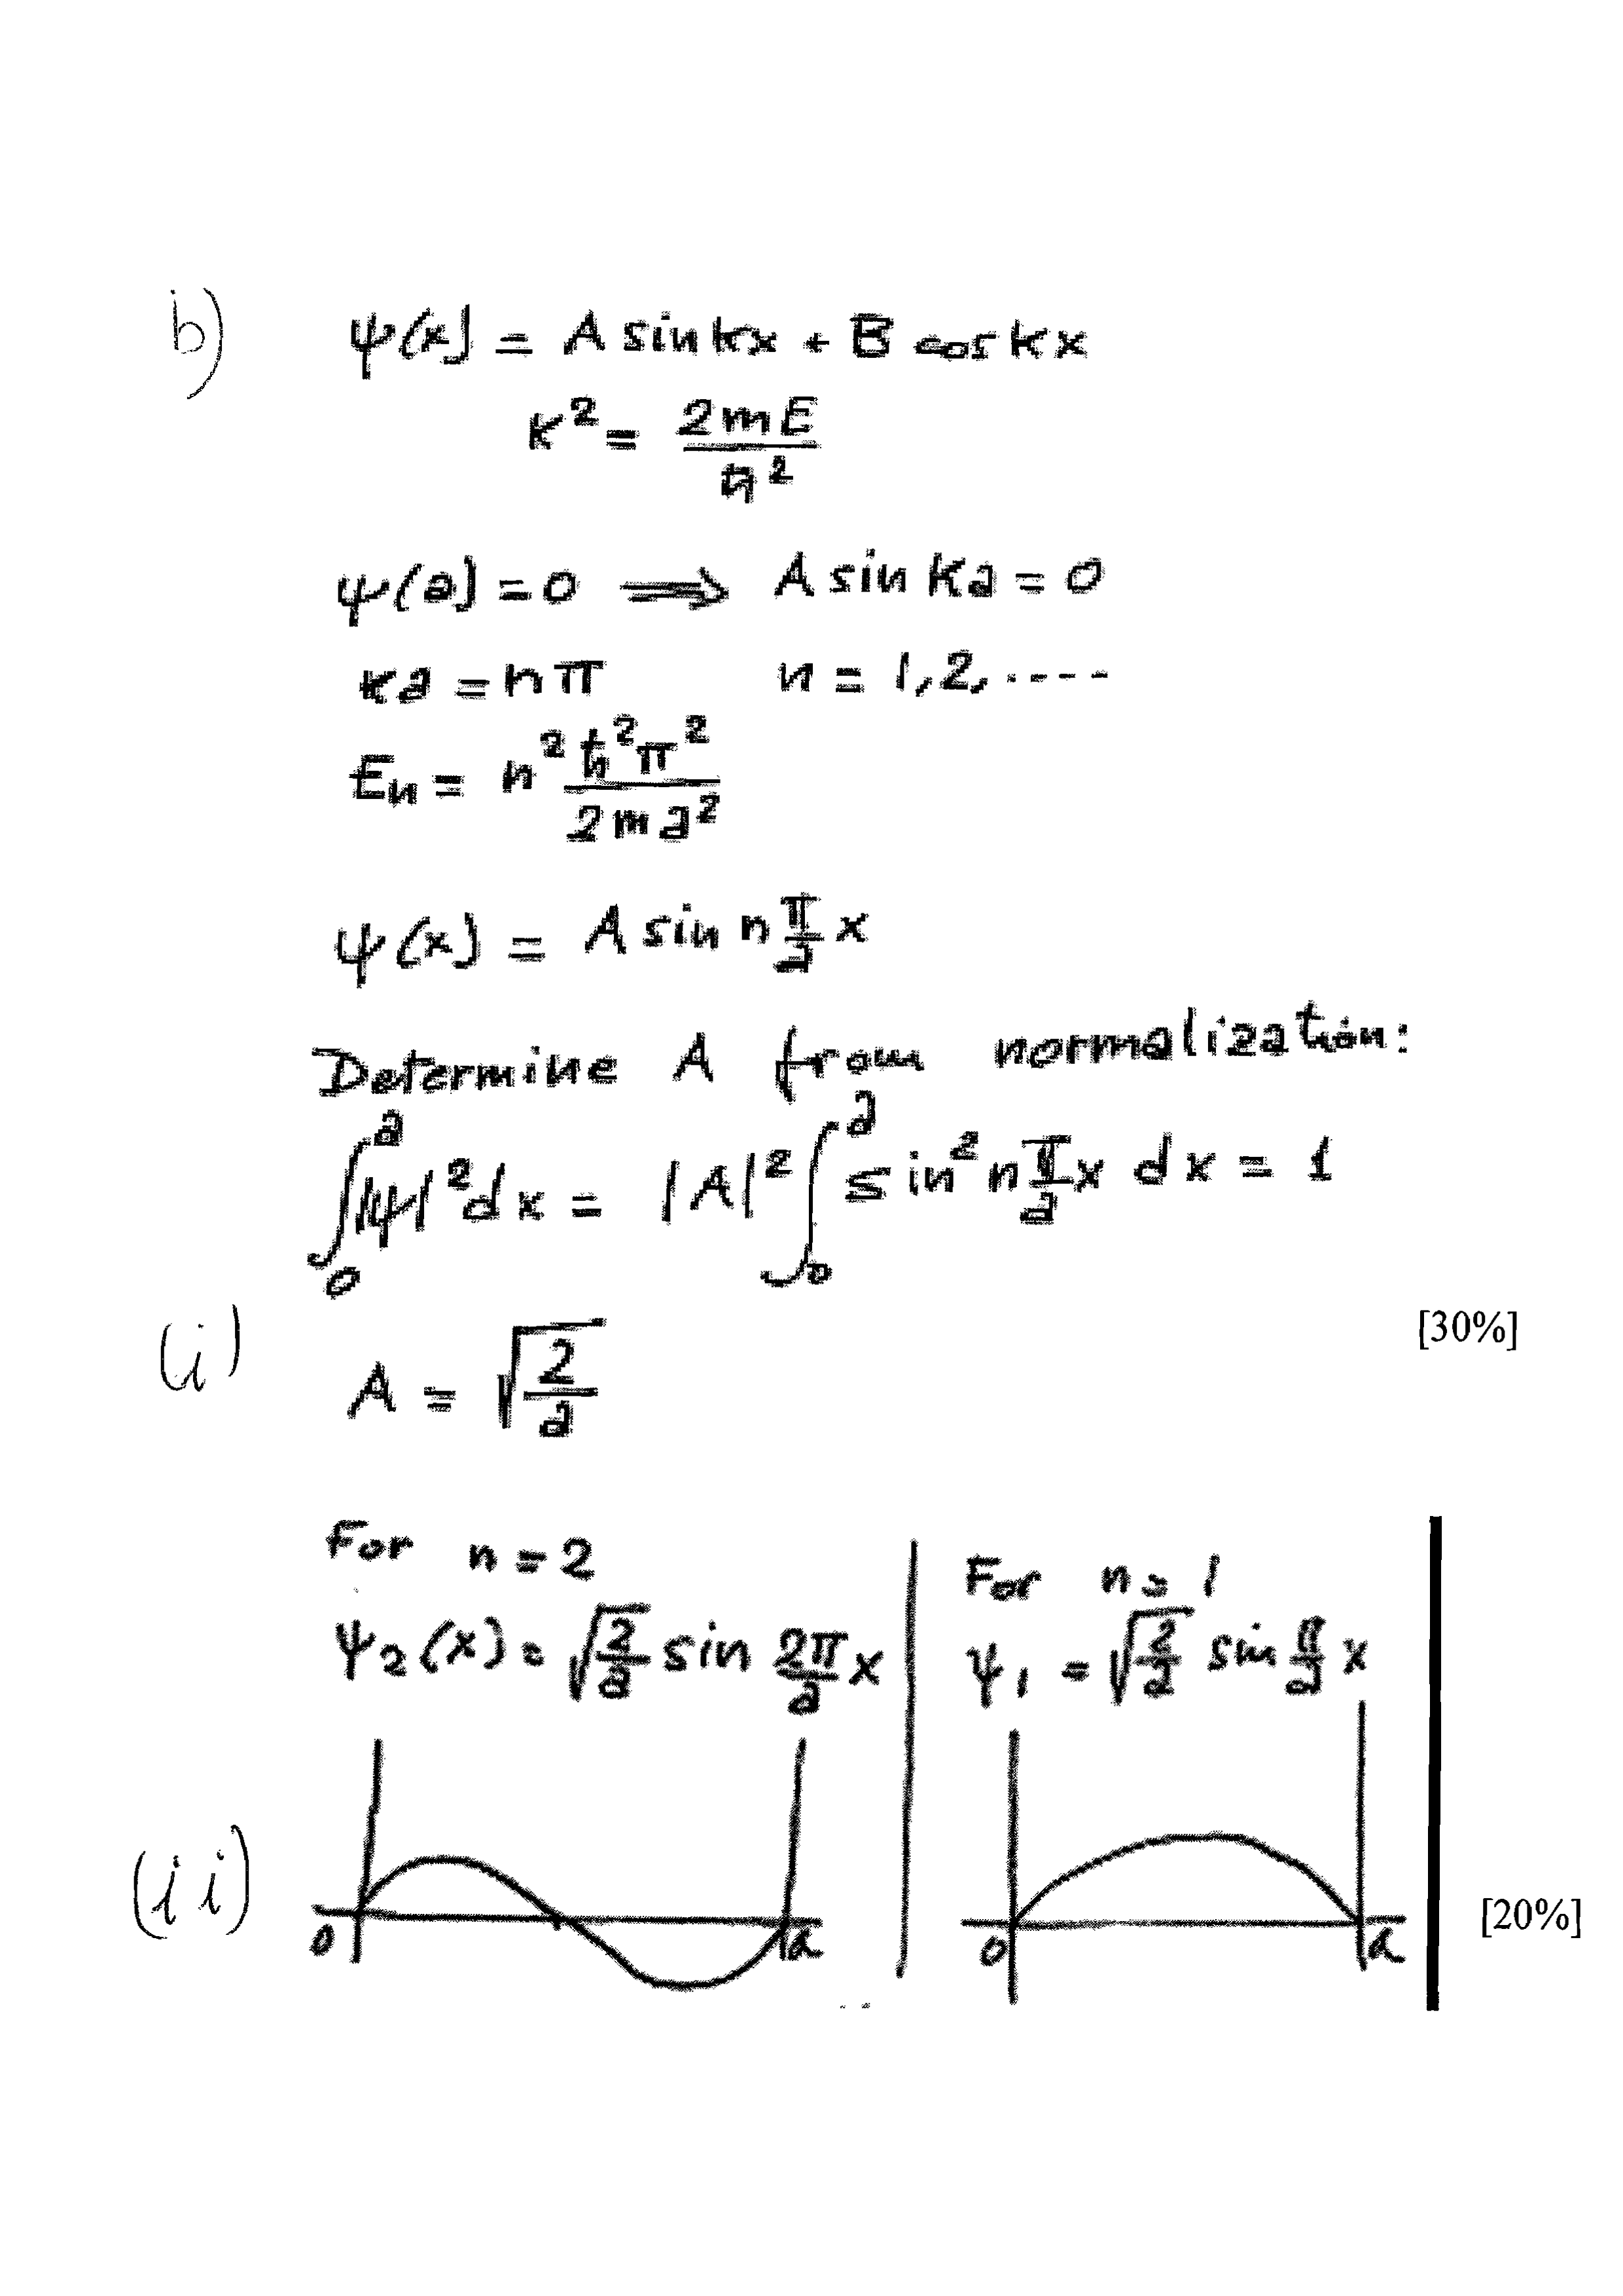 b) ψ(x) = A sin kx + B cos kx
k² = 2mE / ħ²
ψ(a) = 0 ⟹ A sin ka = 0
ka = nπ n = 1, 2, ----
Eₙ = n² ħ²π² / 2ma²
ψ(x) = A sin n π/a x
Determine A from normalization:
∫₀ᵃ |ψ|² dx = |A|² ∫₀ᵃ sin² n π/a x dx = 1
[30%]
(i) A = √(2/a)
For n = 2
ψ₂(x) = √(2/a) sin 2π/a x
For n = 1
ψ₁ = √(2/a) sin π/a x
(ii)
0 a
0 a
[20%]